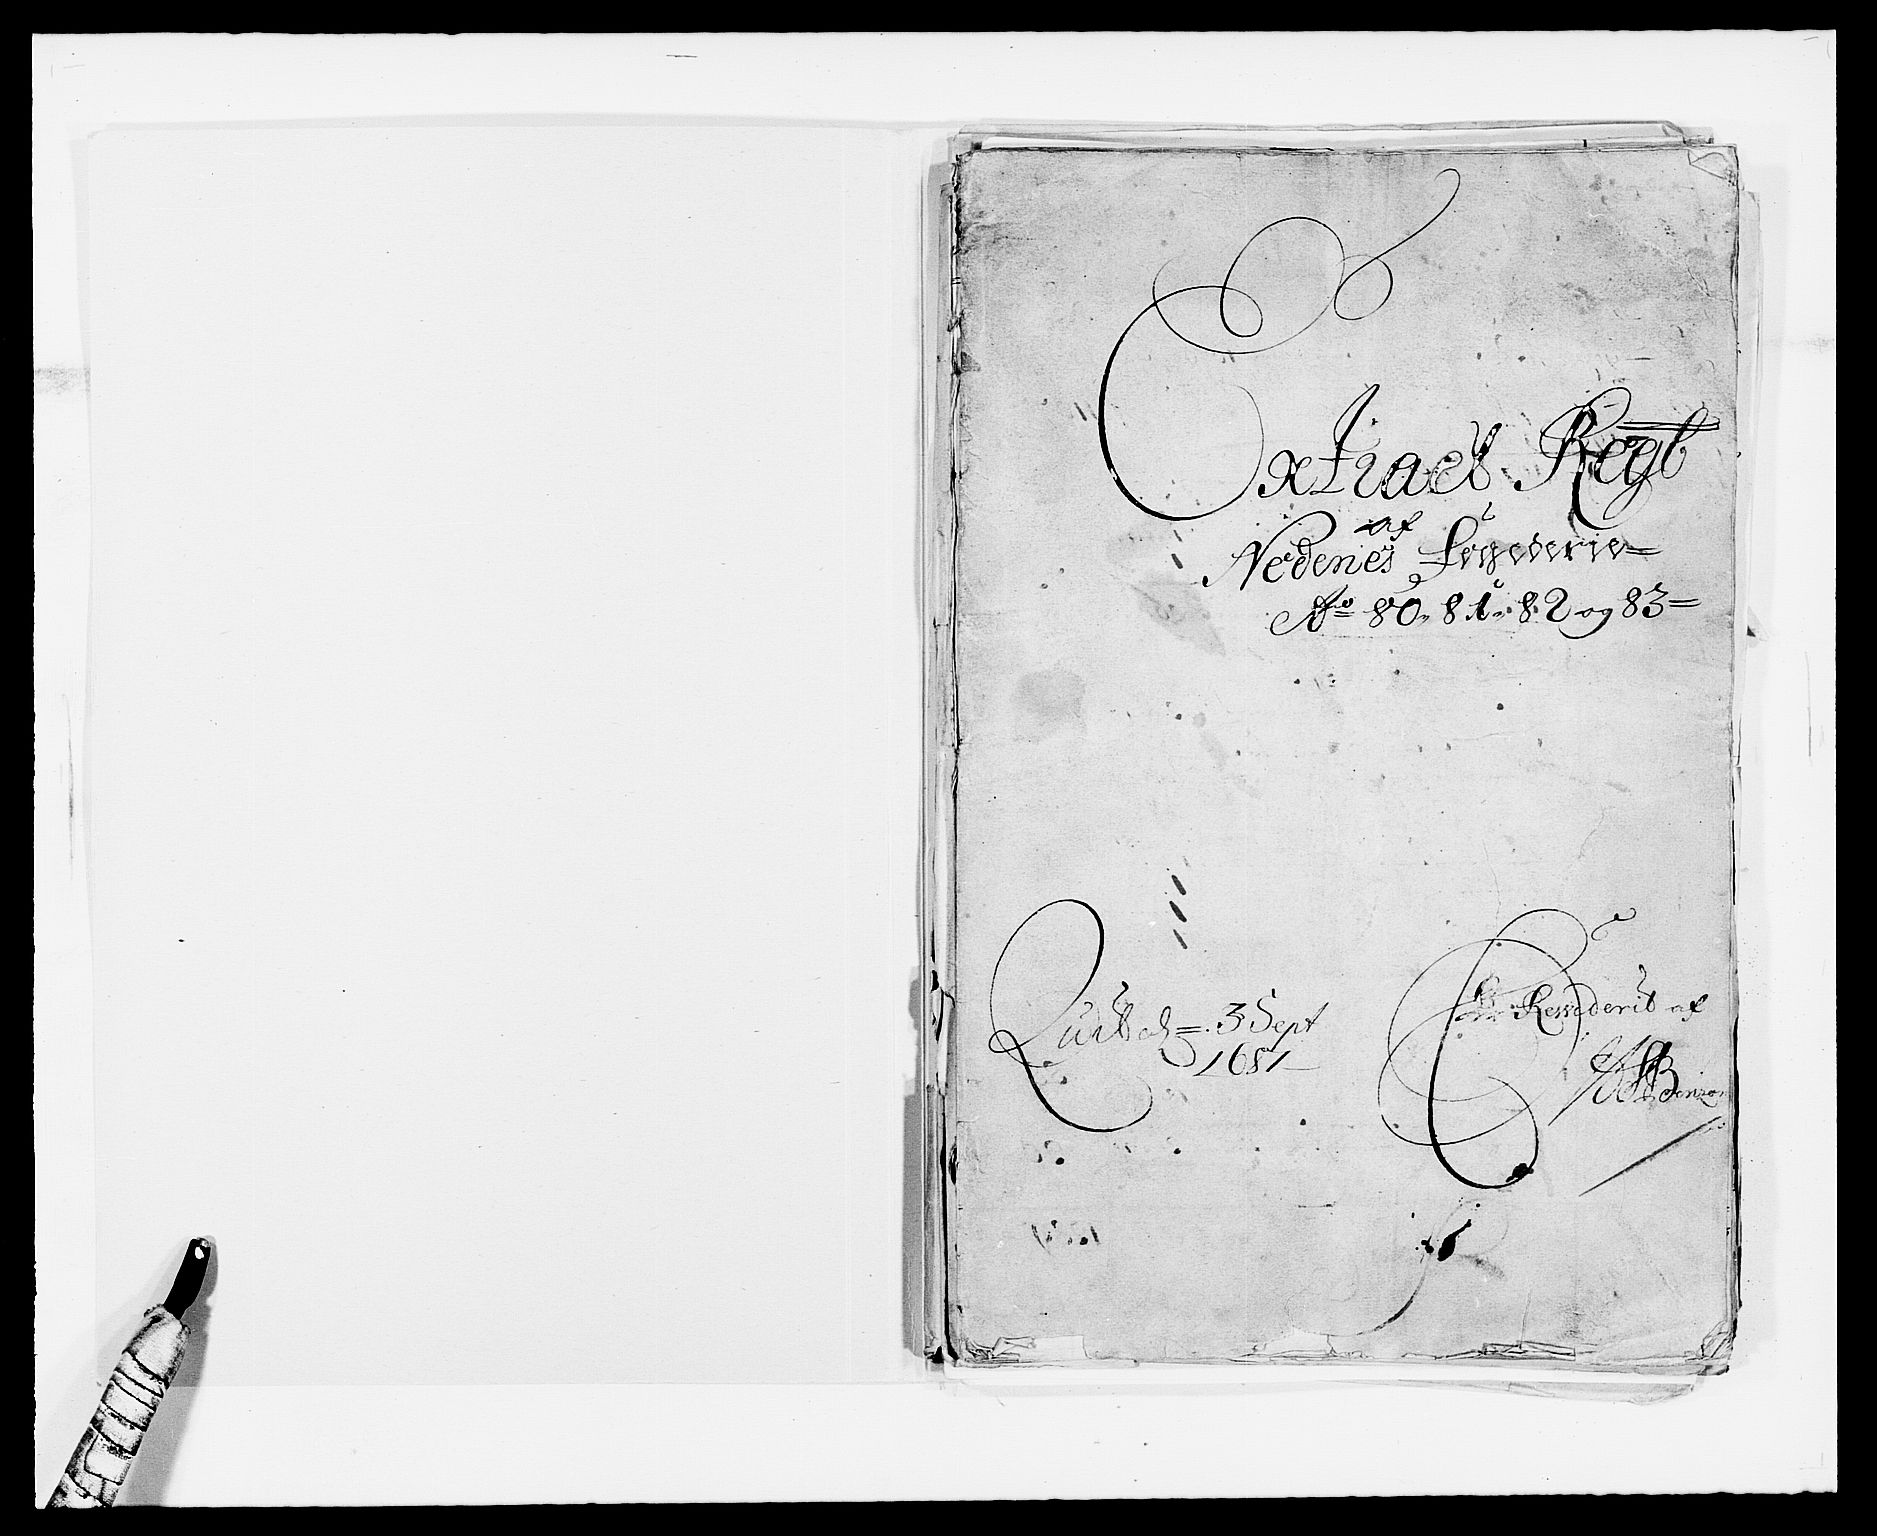 Extract Regb
af
Nedenes Fogederie
Ao 80. 81. 82 og 83
3 Sept
1687
Revideret af
Benzon